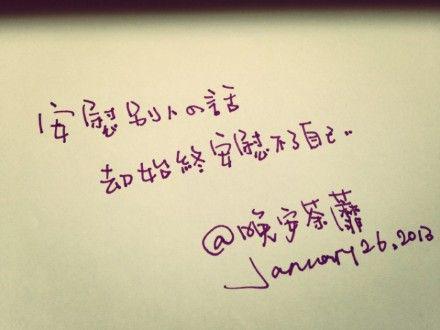 安慰别人の話
却始終安慰不了自己..
@晚安荼蘼
January 26, 2013